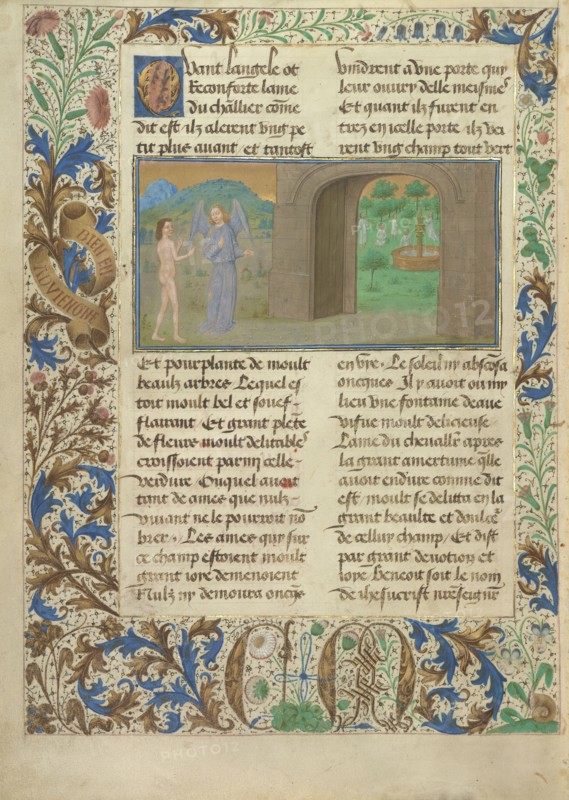 Quant langele ot
Reconforte lame
Du challier cõme
dit est ilz alerent vng pe
tit plus auant et tantost
vindrent a vne porte quy
leur ouury delle meisme
Et quant ilz furent en
trez en icelle porte ilz vei
rent vng champ tout vert
Et pourplante de moult
beaulz arbres Lequel es
toit moult bel et souef
flairant Et grant plete
de fleurs moult delitable
croissoient parmi celle
verdure Ouquel auoit
tant de ames que nulz
viuant ne le pourroit nõ
brer Les ames quy sur
ce champ estoient moult
grant ioye demenoient
Nulz ny demoura oncqs
en vye Le soleil ny absconsa
oncques Il y auoit ou my
lieu vne fontaine deaue
viue moult delicieuse
Lame du cheuallier apres
la grant amertume qlle
auoit endure comme dit
est moult se delitta en la
grant beaulte et doulcr
de celluy champ Et dist
par grant deuotion et
ioye Benoit soit le nom
de ihesucrist nreseignr
BIEN EN
AVIENGNE
PHOTO12
PHOTO12